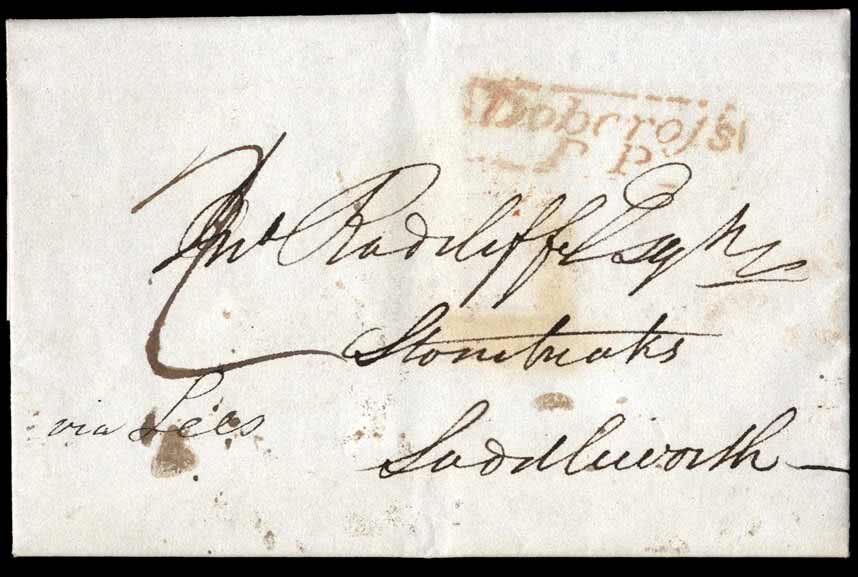 Dobcroſs
P P
2
Jno Radcliffe Esqr
Stonebreaks
via Lees
Saddleworth